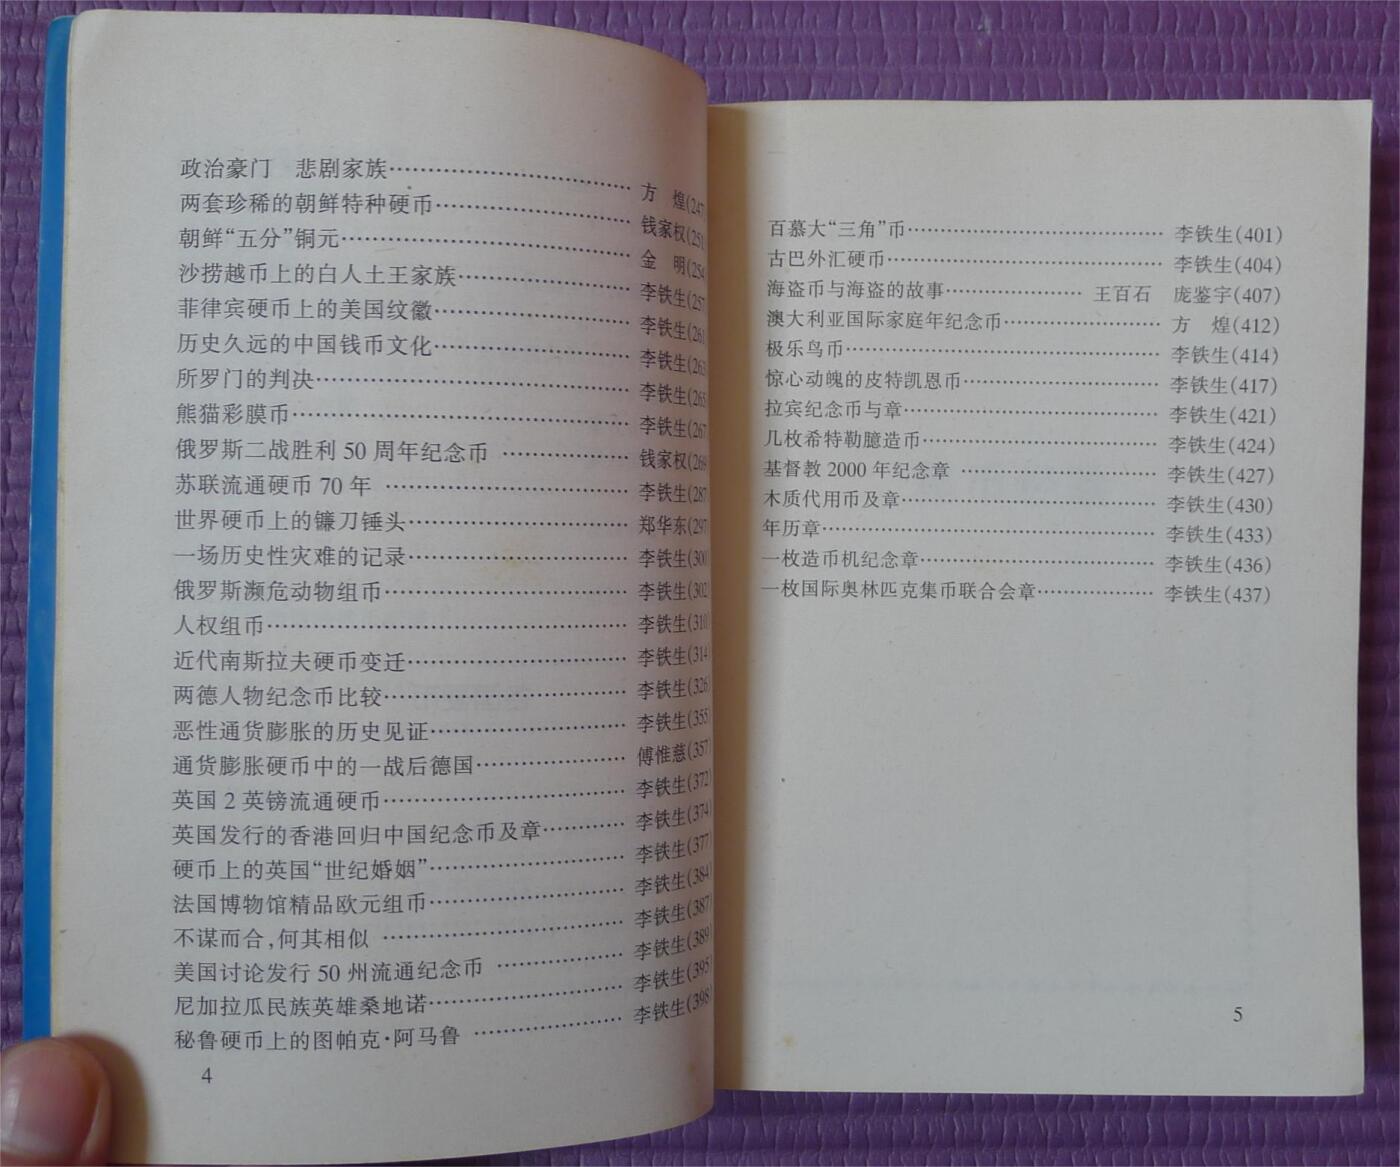 政治豪门　悲剧家族…………………………方　煌(247
两套珍稀的朝鲜特种硬币……………………钱家权(251
朝鲜“五分”铜元………………………………金　明(254
沙捞越币上的白人土王家族…………………李铁生(257
菲律宾硬币上的美国纹徽……………………李铁生(261
历史久远的中国钱币文化……………………李铁生(263
所罗门的判决…………………………………李铁生(265
熊猫彩膜币……………………………………李铁生(267
俄罗斯二战胜利 50 周年纪念币 ……………钱家权(269
苏联流通硬币 70 年 …………………………李铁生(287
世界硬币上的镰刀锤头………………………郑华东(297
一场历史性灾难的记录………………………李铁生(300
俄罗斯濒危动物组币…………………………李铁生(302
人权组币………………………………………李铁生(310
近代南斯拉夫硬币变迁………………………李铁生(314
两德人物纪念币比较…………………………李铁生(326
恶性通货膨胀的历史见证……………………李铁生(355
通货膨胀硬币中的一战后德国………………傅惟慈(357
英国 2 英镑流通硬币…………………………李铁生(372
英国发行的香港回归中国纪念币及章………李铁生(374
硬币上的英国“世纪婚姻”……………………李铁生(377
法国博物馆精品欧元组币……………………李铁生(384
不谋而合,何其相似 …………………………李铁生(387
美国讨论发行 50 州流通纪念币 ……………李铁生(389
尼加拉瓜民族英雄桑地诺……………………李铁生(395
秘鲁硬币上的图帕克·阿马鲁 ………………李铁生(398
4
百慕大“三角”币………………………………李铁生(401)
古巴外汇硬币…………………………………李铁生(404)
海盗币与海盗的故事………………王百石　庞鉴宇(407)
澳大利亚国际家庭年纪念币…………………方　煌(412)
极乐鸟币………………………………………李铁生(414)
惊心动魄的皮特凯恩币………………………李铁生(417)
拉宾纪念币与章………………………………李铁生(421)
几枚希特勒臆造币……………………………李铁生(424)
基督教 2000 年纪念章 ………………………李铁生(427)
木质代用币及章………………………………李铁生(430)
年历章…………………………………………李铁生(433)
一枚造币机纪念章……………………………李铁生(436)
一枚国际奥林匹克集币联合会章……………李铁生(437)
5